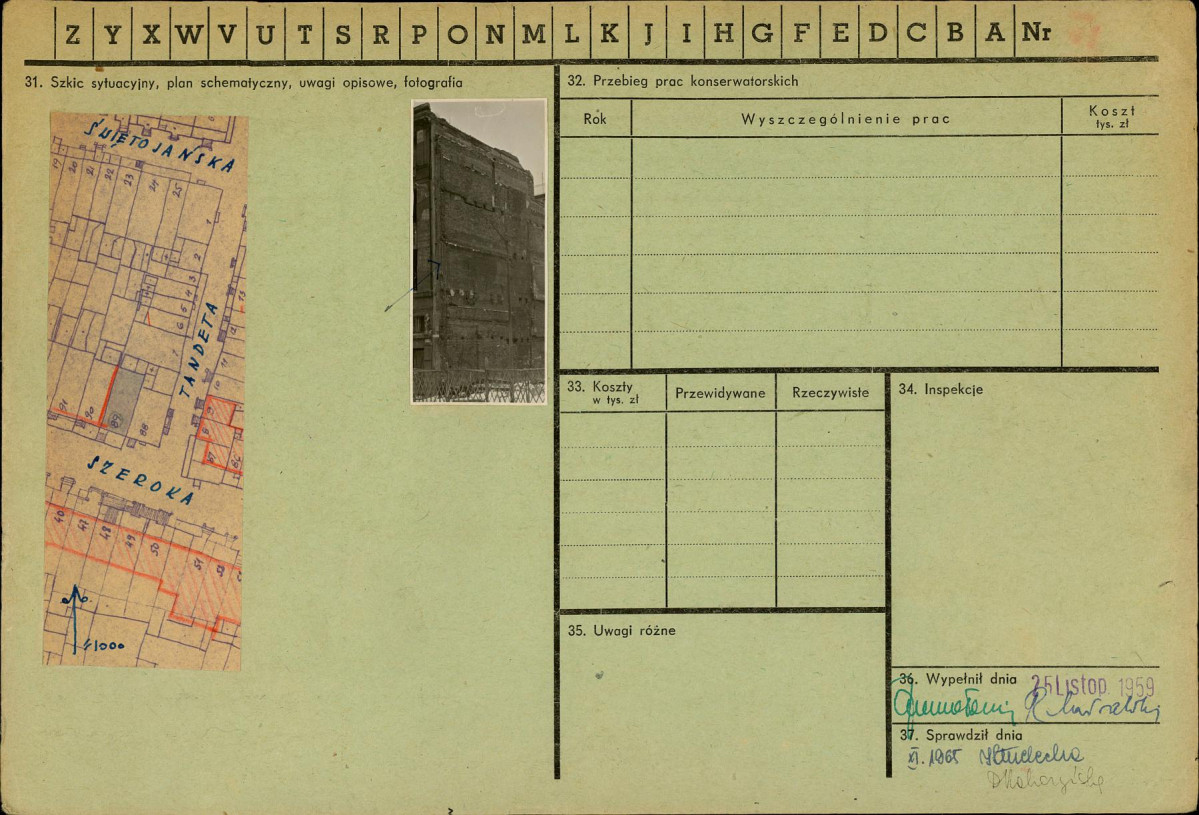 Z Y X W V U T S R P O N M L K J I H G F E D C B A Nr
31. Szkic sytuacyjny, plan schematyczny, uwagi opisowe, fotografia
ŚWIĘTOJAŃSKA
19 20 21 22 23 24 25
1
2
3
4
5
6
7
TANDETA
13
12
11
10
9
8
91 90 89 88
SZEROKA
40 47 48 49 50 51 52
1:1000
32. Przebieg prac konserwatorskich
Rok Wyszczególnienie prac Koszt
tys. zł
33. Koszty Przewidywane Rzeczywiste
w tys. zł
34. Inspekcje
35. Uwagi różne
36. Wypełnił dnia 25 Listop. 1959
37. Sprawdził dnia
XI. 1965